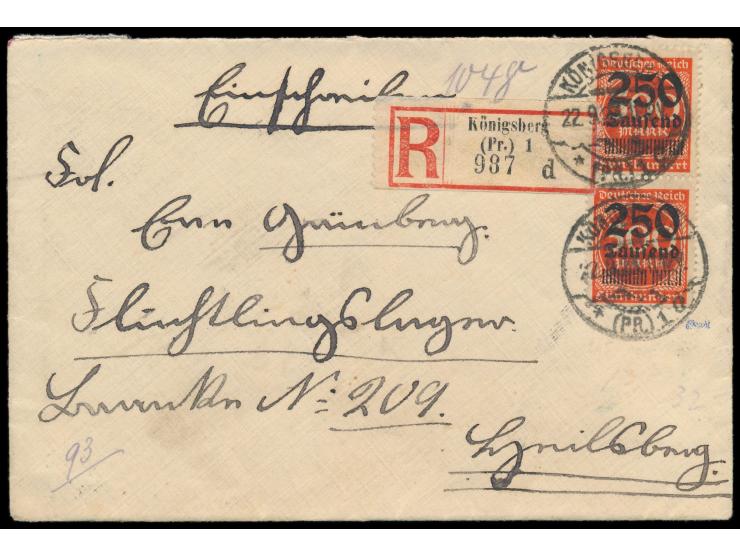 Einschreiben
104gr
R
Königsberg
(Pr.) 1
987 d
Deutsches Reich
250
Tausend
MARK
Fünfhundert
KÖNIGSBERG
22.9.
* (PR.)
Deutsches Reich
250
Tausend
MARK
Fünfhundert
* (PR.) 1
Frl.
Erna Grünberg.
Flüchtlingslager
Baracke No: 209.
Heilsberg.
93
32